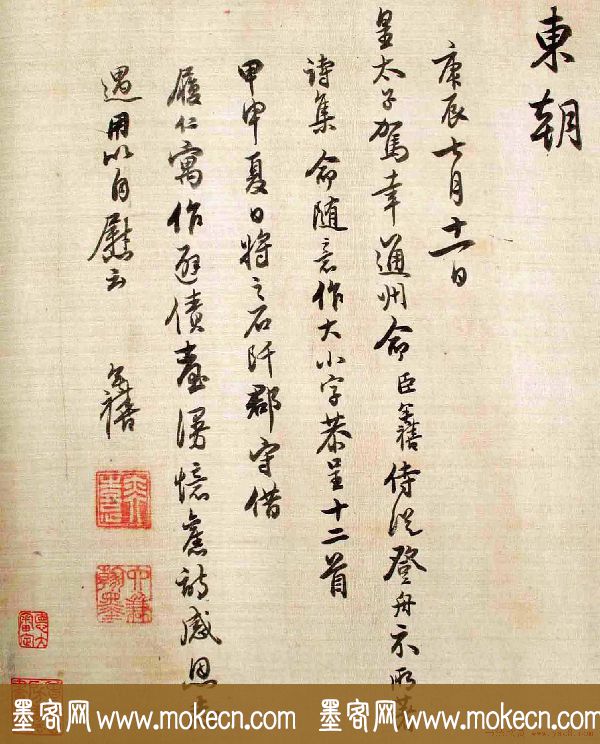 東朝
庚辰七月十一日
皇太子駕幸通州命臣年禧侍從登舟示所著
詩集命随意作大小字恭呈十二首
甲申夏日將之石阡郡守借
履仁寓作避債臺漫憶舊詩感恩
遇用以自慰云
年禧
墨客网 www.mokecn.com 墨客网 www.mokecn.com